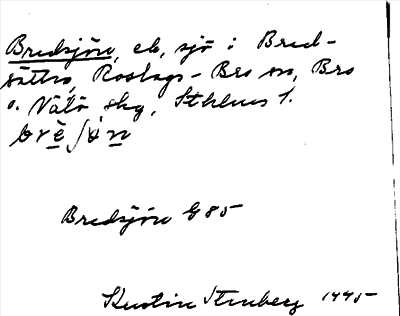 Bredsjön, eb, sjö i Bred-
sättra, Roslags-Bro sn, Bro
o. Vätö skg, Sthlms l.
Bredsjön G85
Kerstin Stenberg 1945